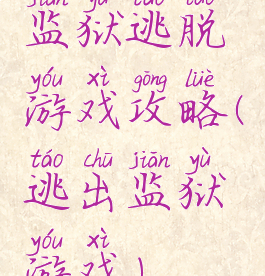 jiān yù táo tuō
监狱逃脱
yóu xì gōng lüè
游戏攻略(
táo chū jiān yù
逃出监狱
yóu xì
游戏)